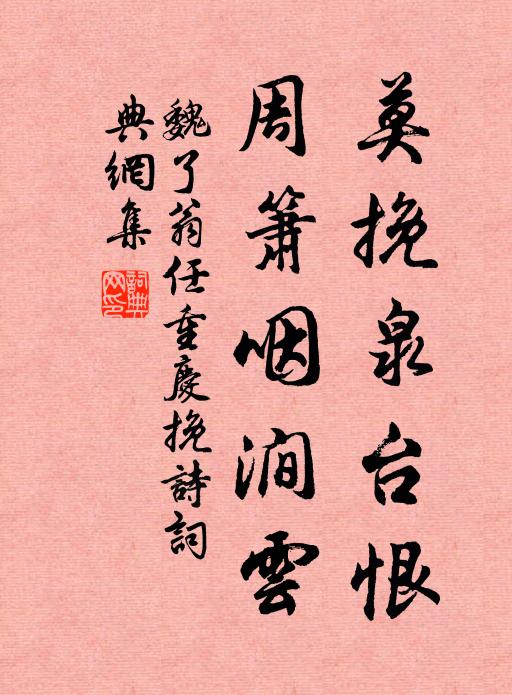 莫挽泉台恨
周簫咽澗雲
魏了翁任重慶挽詩詞
典網集
詞典網印